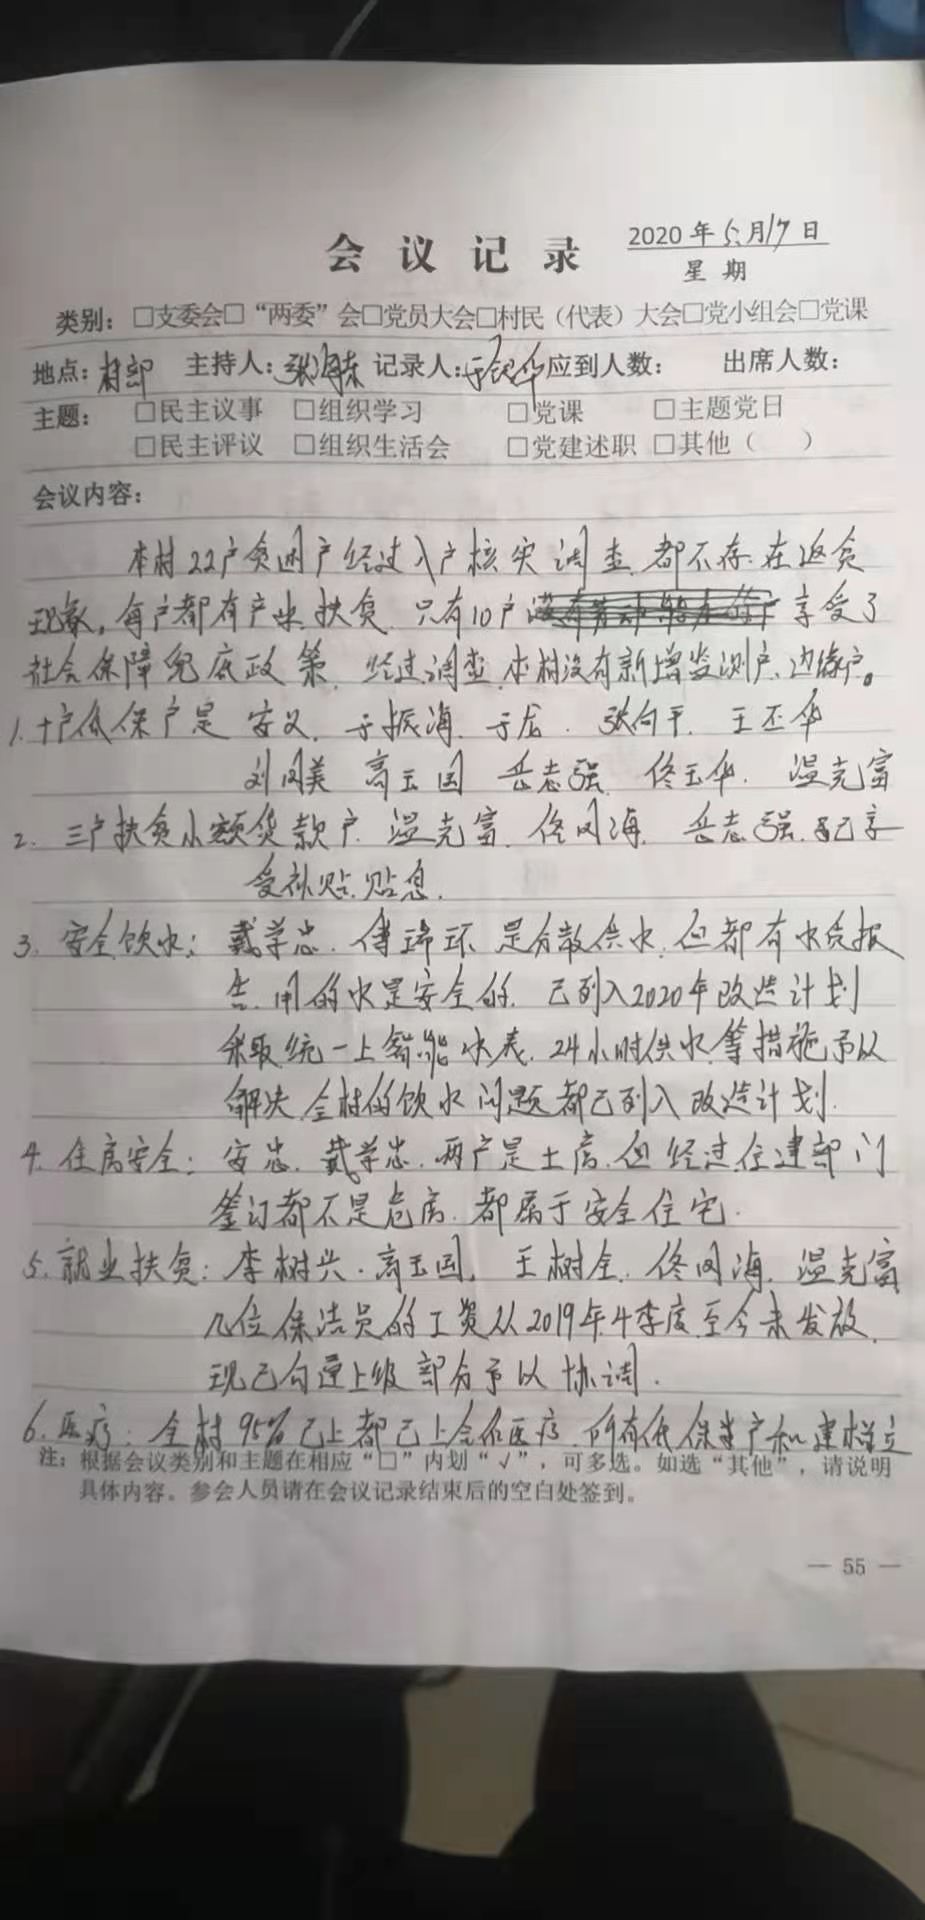 会议记录
2020年5月17日
星期
类别：□支委会□“两委”会□党员大会□村民（代表）大会□党小组会□党课
地点：村部 主持人：张海东 记录人：于 华 应到人数： 出席人数：
主题： □民主议事 □组织学习 □党课 □主题党日
□民主评议 □组织生活会 □党建述职 □其他（ ）
会议内容：
本村22户贫困户经过入户核实调查，都不存在返贫
现象，每户都有产业扶贫，只有10户 享受了
社会保障兜底政策，经过调查，本村没有新增监测户、边缘户。
1. 十户低保户是 安义、于振海、于龙、张向平、王丕华
刘凤美 高玉国 岳志强 佟玉华、温克富
2. 三户扶贫小额贷款户、温克富、佟凤海、岳志强、都已享
受补贴、贴息.
3. 安全饮水：戴学忠、傅瑞环 是分散供水，但都有水质报
告，用的水是安全的，已列入2020年改造计划
采取统一上智能水表，24小时供水，等措施予以
解决，全村的饮水问题都已列入改造计划.
4. 住房安全：安忠、戴学忠，两户是土房，但经过住建部门
鉴订都不是危房，都属于安全住宅.
5. 就业扶贫：李树兴、高玉国，王树全，佟凤海，温克富
几位保洁员的工资从2019年4季度至今未发放，
现已向 上级部分予以协调.
6. 医疗：全村95%已上都已上合作医疗，所有低保户和建档立
注：根据会议类别和主题在相应“□”内划“√”，可多选。如选“其他”，请说明
具体内容。参会人员请在会议记录结束后的空白处签到。
— 55 —